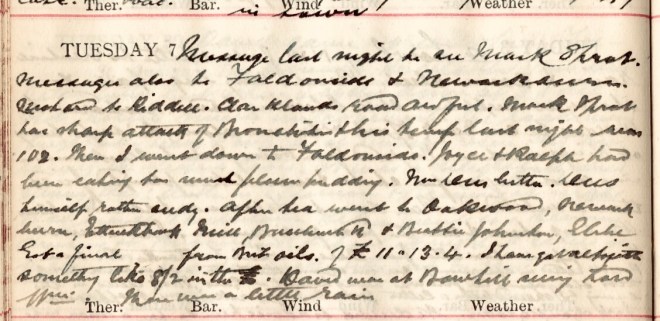 Ther. Bar. Wind Weather
in town
TUESDAY 7 Message last night to see Mark Sprot.
Messages also to Faldonside & Newarkburn.
to Riddell. Clarilaw road awful. Mark Sprot
has sharp attack of Bronchitis & his temp last night was
102. Then I went down to Faldonside. Joyce & Ralph had
been eating too much plum pudding. Now better.
himself rather seedy. After tea went to Oakwood, Newark
burn, Ettrickbank Mill, & Bettie Johnston,
Got a final from Brit oils. of £11-13-4. I have got altogether
something like 8/2 in the £. David was at Bowhill hard
There was a little rain
Ther: Bar. Wind Weather